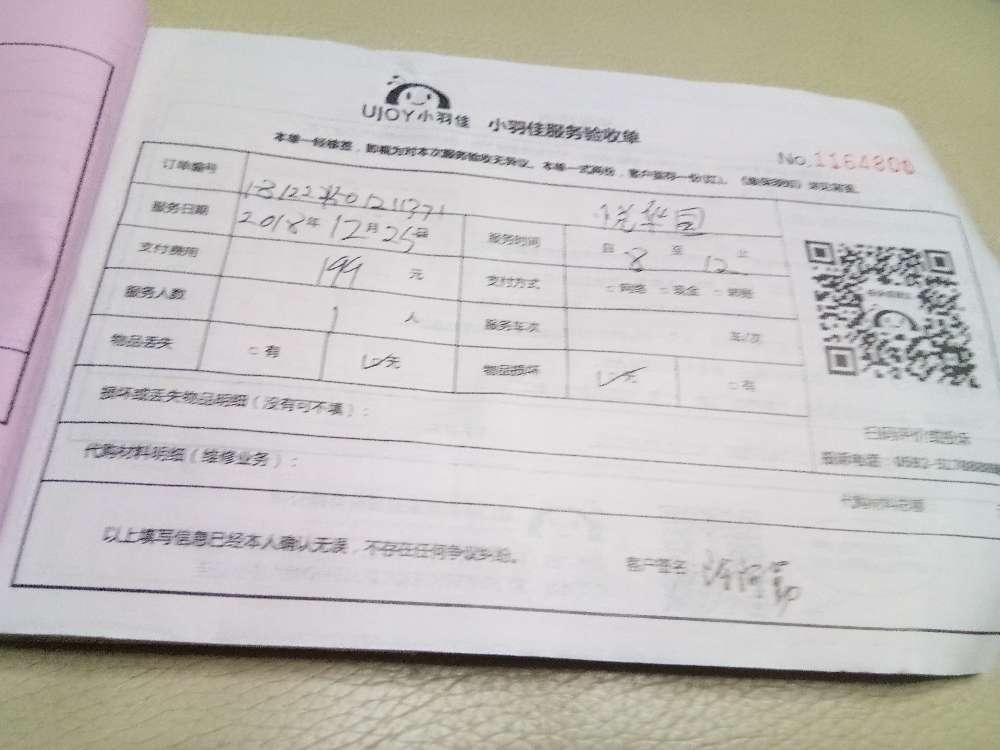 UJOY小羽佳 小羽佳服务验收单
No.1164800
本单一经修差,即视为对本次服务验收无异议。本单一式两份,客户留存一份(红)。
订单编号 悦华园
服务日期 2018年12月25日 服务时间 自 8 至 12 止
支付费用 199 元 支付方式 □网络 □现金 □转账
服务人数 1 人 服务车次 车/次
物品丢失 □有 □无 物品损坏 □无 □有
损坏或丢失物品明细(没有可不填):
扫码评价或投诉
代购材料明细(维修业务):
代购材料总额
以上填写信息已经本人确认无误,不存在任何争议纠纷。 客户签名: